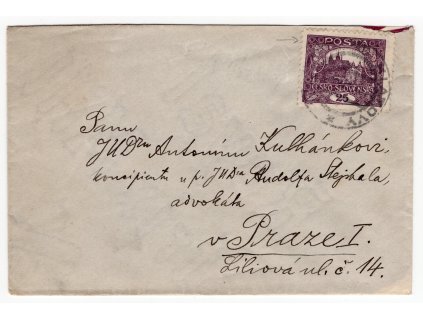 POSTA
ČESKO-SLOVENSKÁ
25
Panu
JUDru Antonínu Kulhánkovi,
koncipientu u p. JUDra Rudolfa Stejskala,
advokáta
v Praze I.
Liliová ul. č. 14.